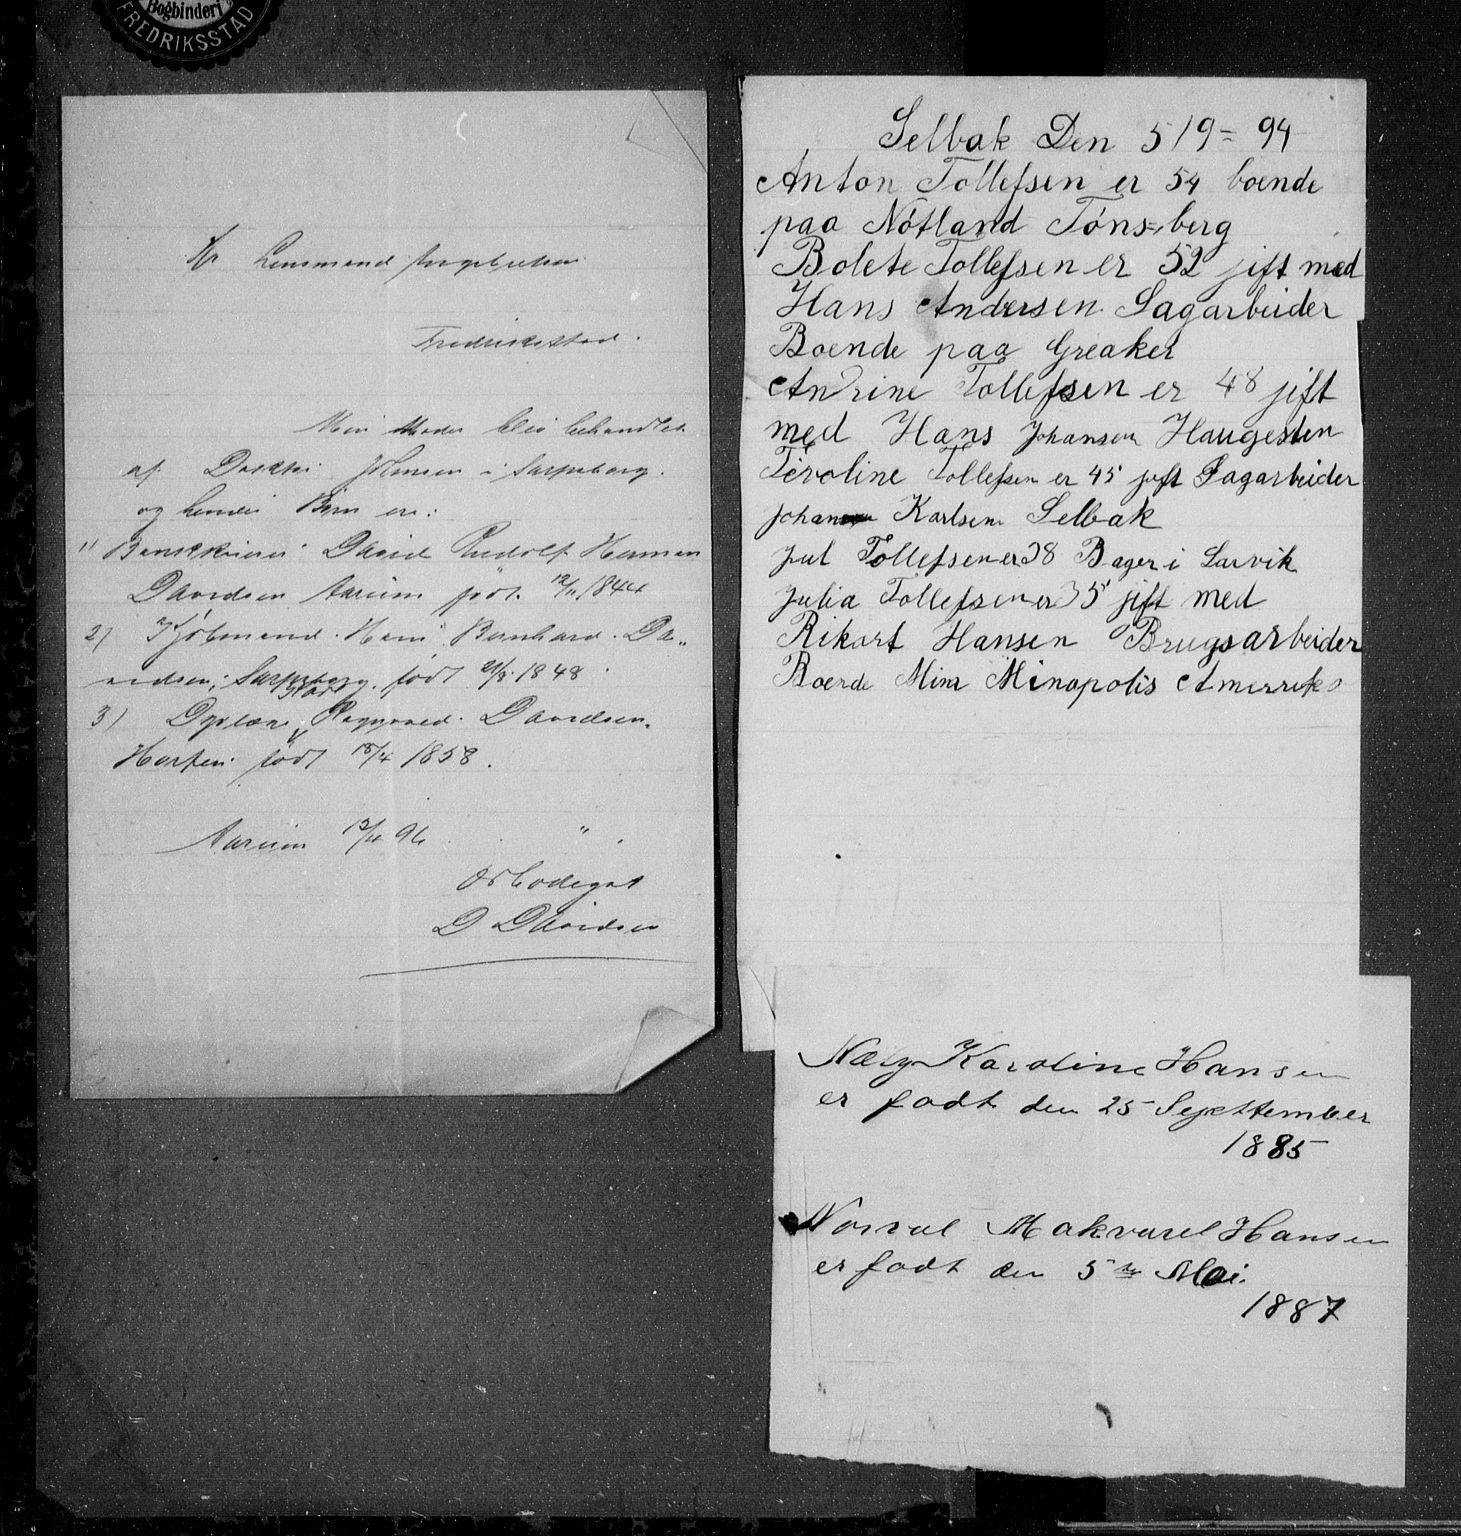 Bogbinderi
FREDRIKSSTAD
Hr Lensmand
Fredriksstad.
Min Moder blev behandlet
af Doktor Johnsen i Sarpsborg.
og hendes Børn er:
1) David Rudolf Herman
Davidsen Aarum født 12/11 1844
2) Kjøbmand Hans Bernhard Da„
vidsen, Sarpsborg. født 21/8 1848
3) Davidsen.
Horten født 18/4 1858.
Aarum 13/4 96
Ærbødigst
D Davidsen
Selbak Den 5/9=94
Anton Tollefsen er 54 boende
paa Nøtland Tøns=berg
Bolete Tollefsen er 52 jift med
Hans Andersen Sagarbeider
Boende paa Greaker
Andrine Tollefsen er 48 jift
med Hans Johansen Haugesten
Teroline Tollefsen er 45 jift Sagarbeider
Johan Karlsen Selbak
Jul Tollefsen er 38 Bager i Larvik
Julia Tollefsen er 35 jift med
Rikart Hansen Brugsarbeider
Boende Mina Minapolis Amerrika
Næly Karoline Hansen
er fodt den 25 Septtember
1885
Norval Makvarel Hansen
er fodt den 5te Mai.
1887